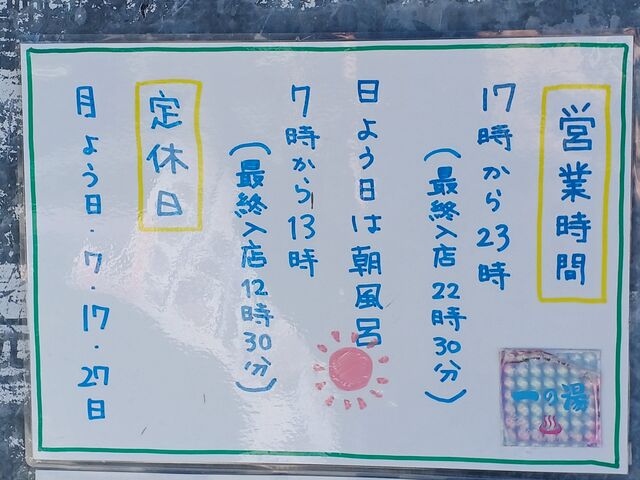 営業時間
17時から23時
(最終入店22時30分)
日よう日は朝風呂
7時から13時
(最終入店12時30分)
定休日
月よう日・7・17・27日
一の湯